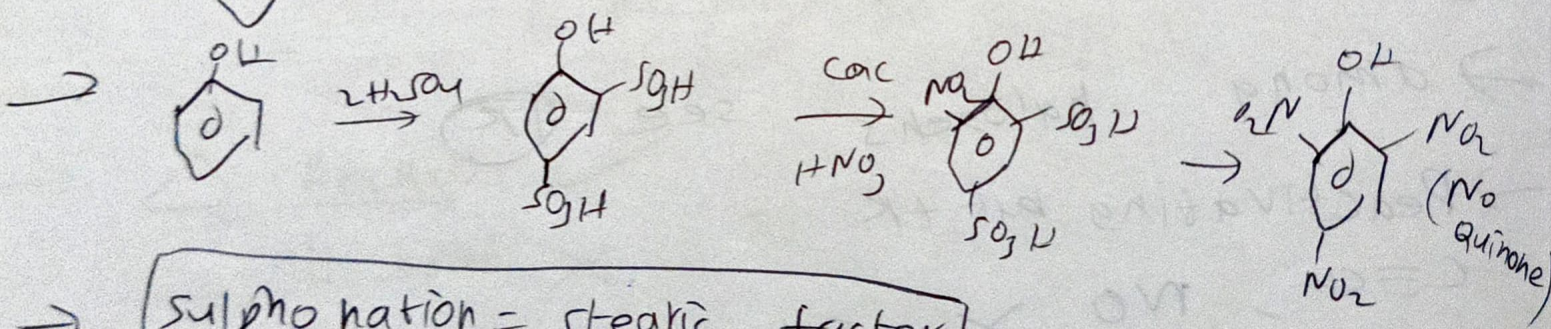 → OH 2H₂SO₄ → OH SO₃H SO₃H conc HNO₃ → OH NO₂ SO₃H SO₃H → OH O₂N NO₂ NO₂ (No Quinone)
→ Sulpho nation = stearic factor